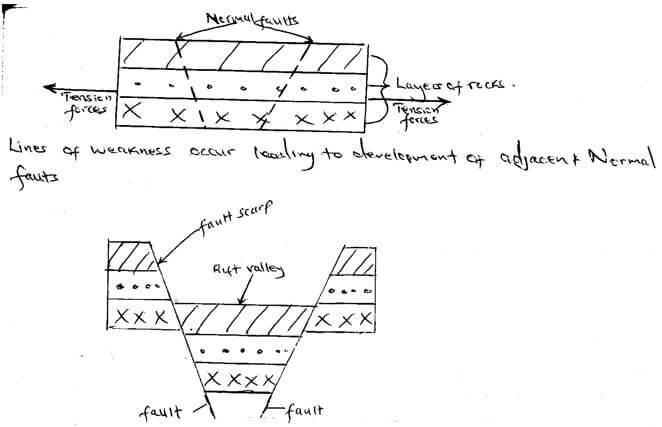 Normal faults
Layers of rocks.
Tension
forces
Tension
forces
Lines of weakness occur leading to development of adjacent Normal
fauts
fault scarp
Rift valley
fault
fault